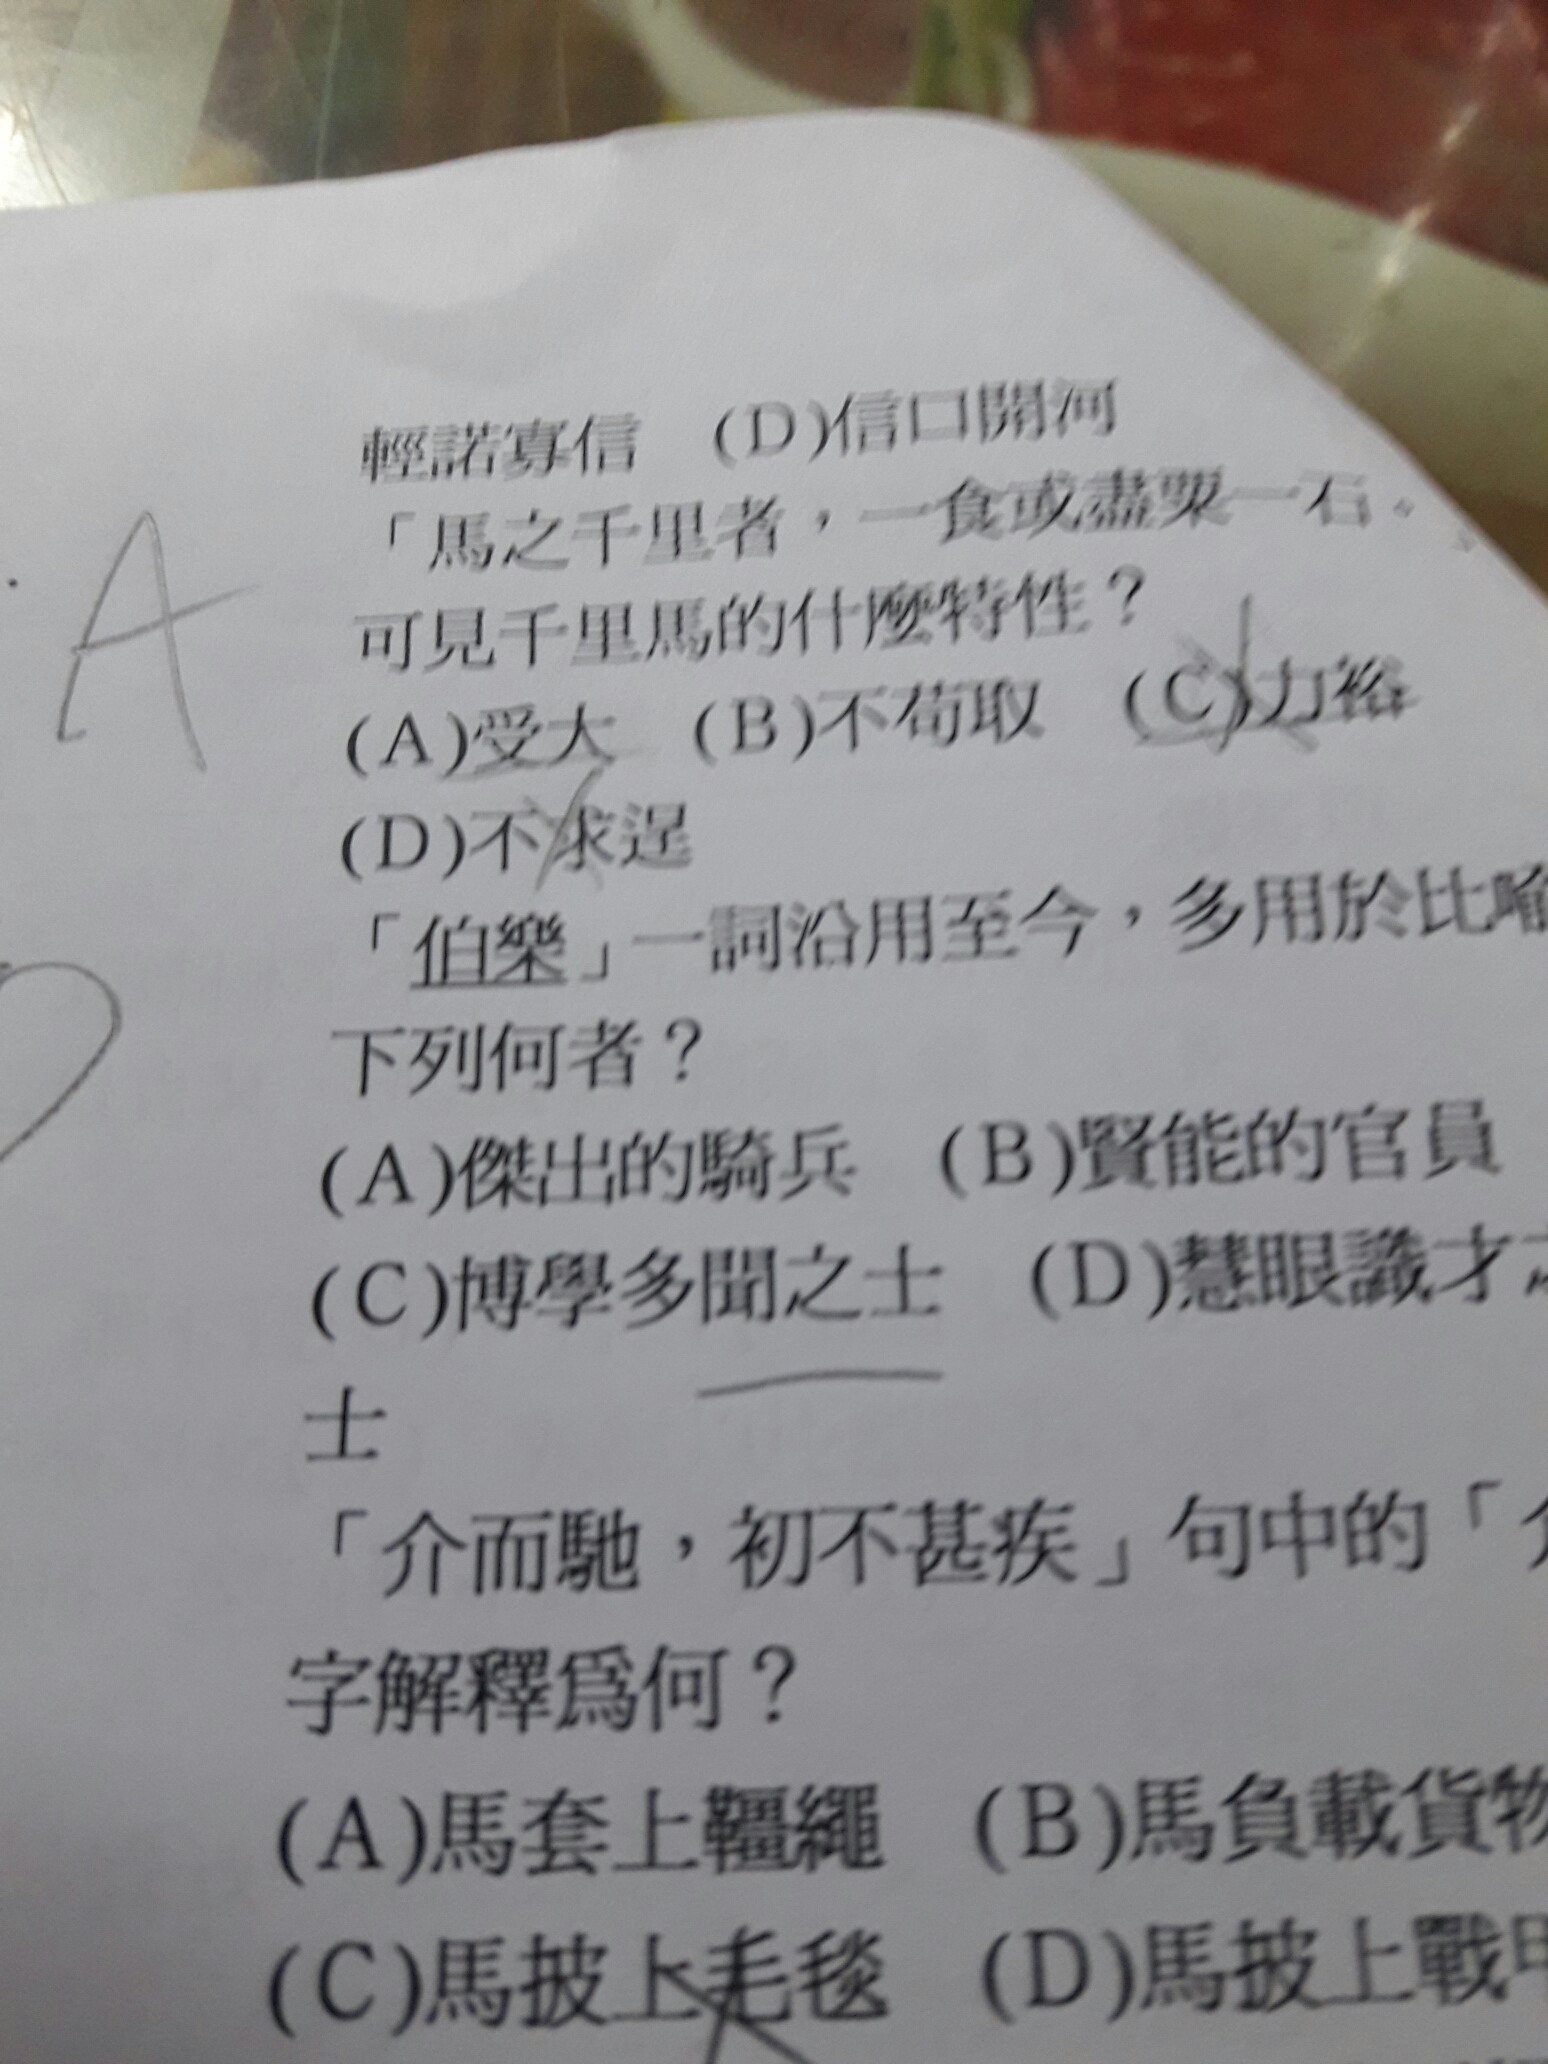 輕諾寡信 (D)信口開河
「馬之千里者，一食或盡粟一石。
A
可見千里馬的什麼特性？
(A)受大 (B)不苟取 (C)力裕
(D)不求逞
「伯樂」一詞沿用至今，多用於比喻
下列何者？
(A)傑出的騎兵 (B)賢能的官員
(C)博學多聞之士 (D)慧眼識才之
士
「介而馳，初不甚疾」句中的「介
字解釋爲何？
(A)馬套上韁繩 (B)馬負載貨物
(C)馬披上毛毯 (D)馬披上戰甲